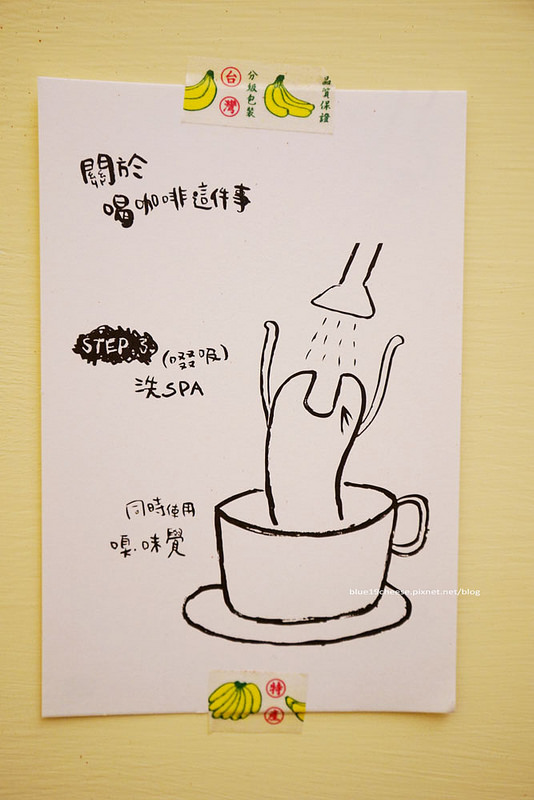 台灣
分級包裝
品質保證
關於
喝咖啡這件事
STEP.3.
(啜吸)
洗SPA
同時使用
嗅.味覺
blue19cheese.pixnet.net/blog
特產